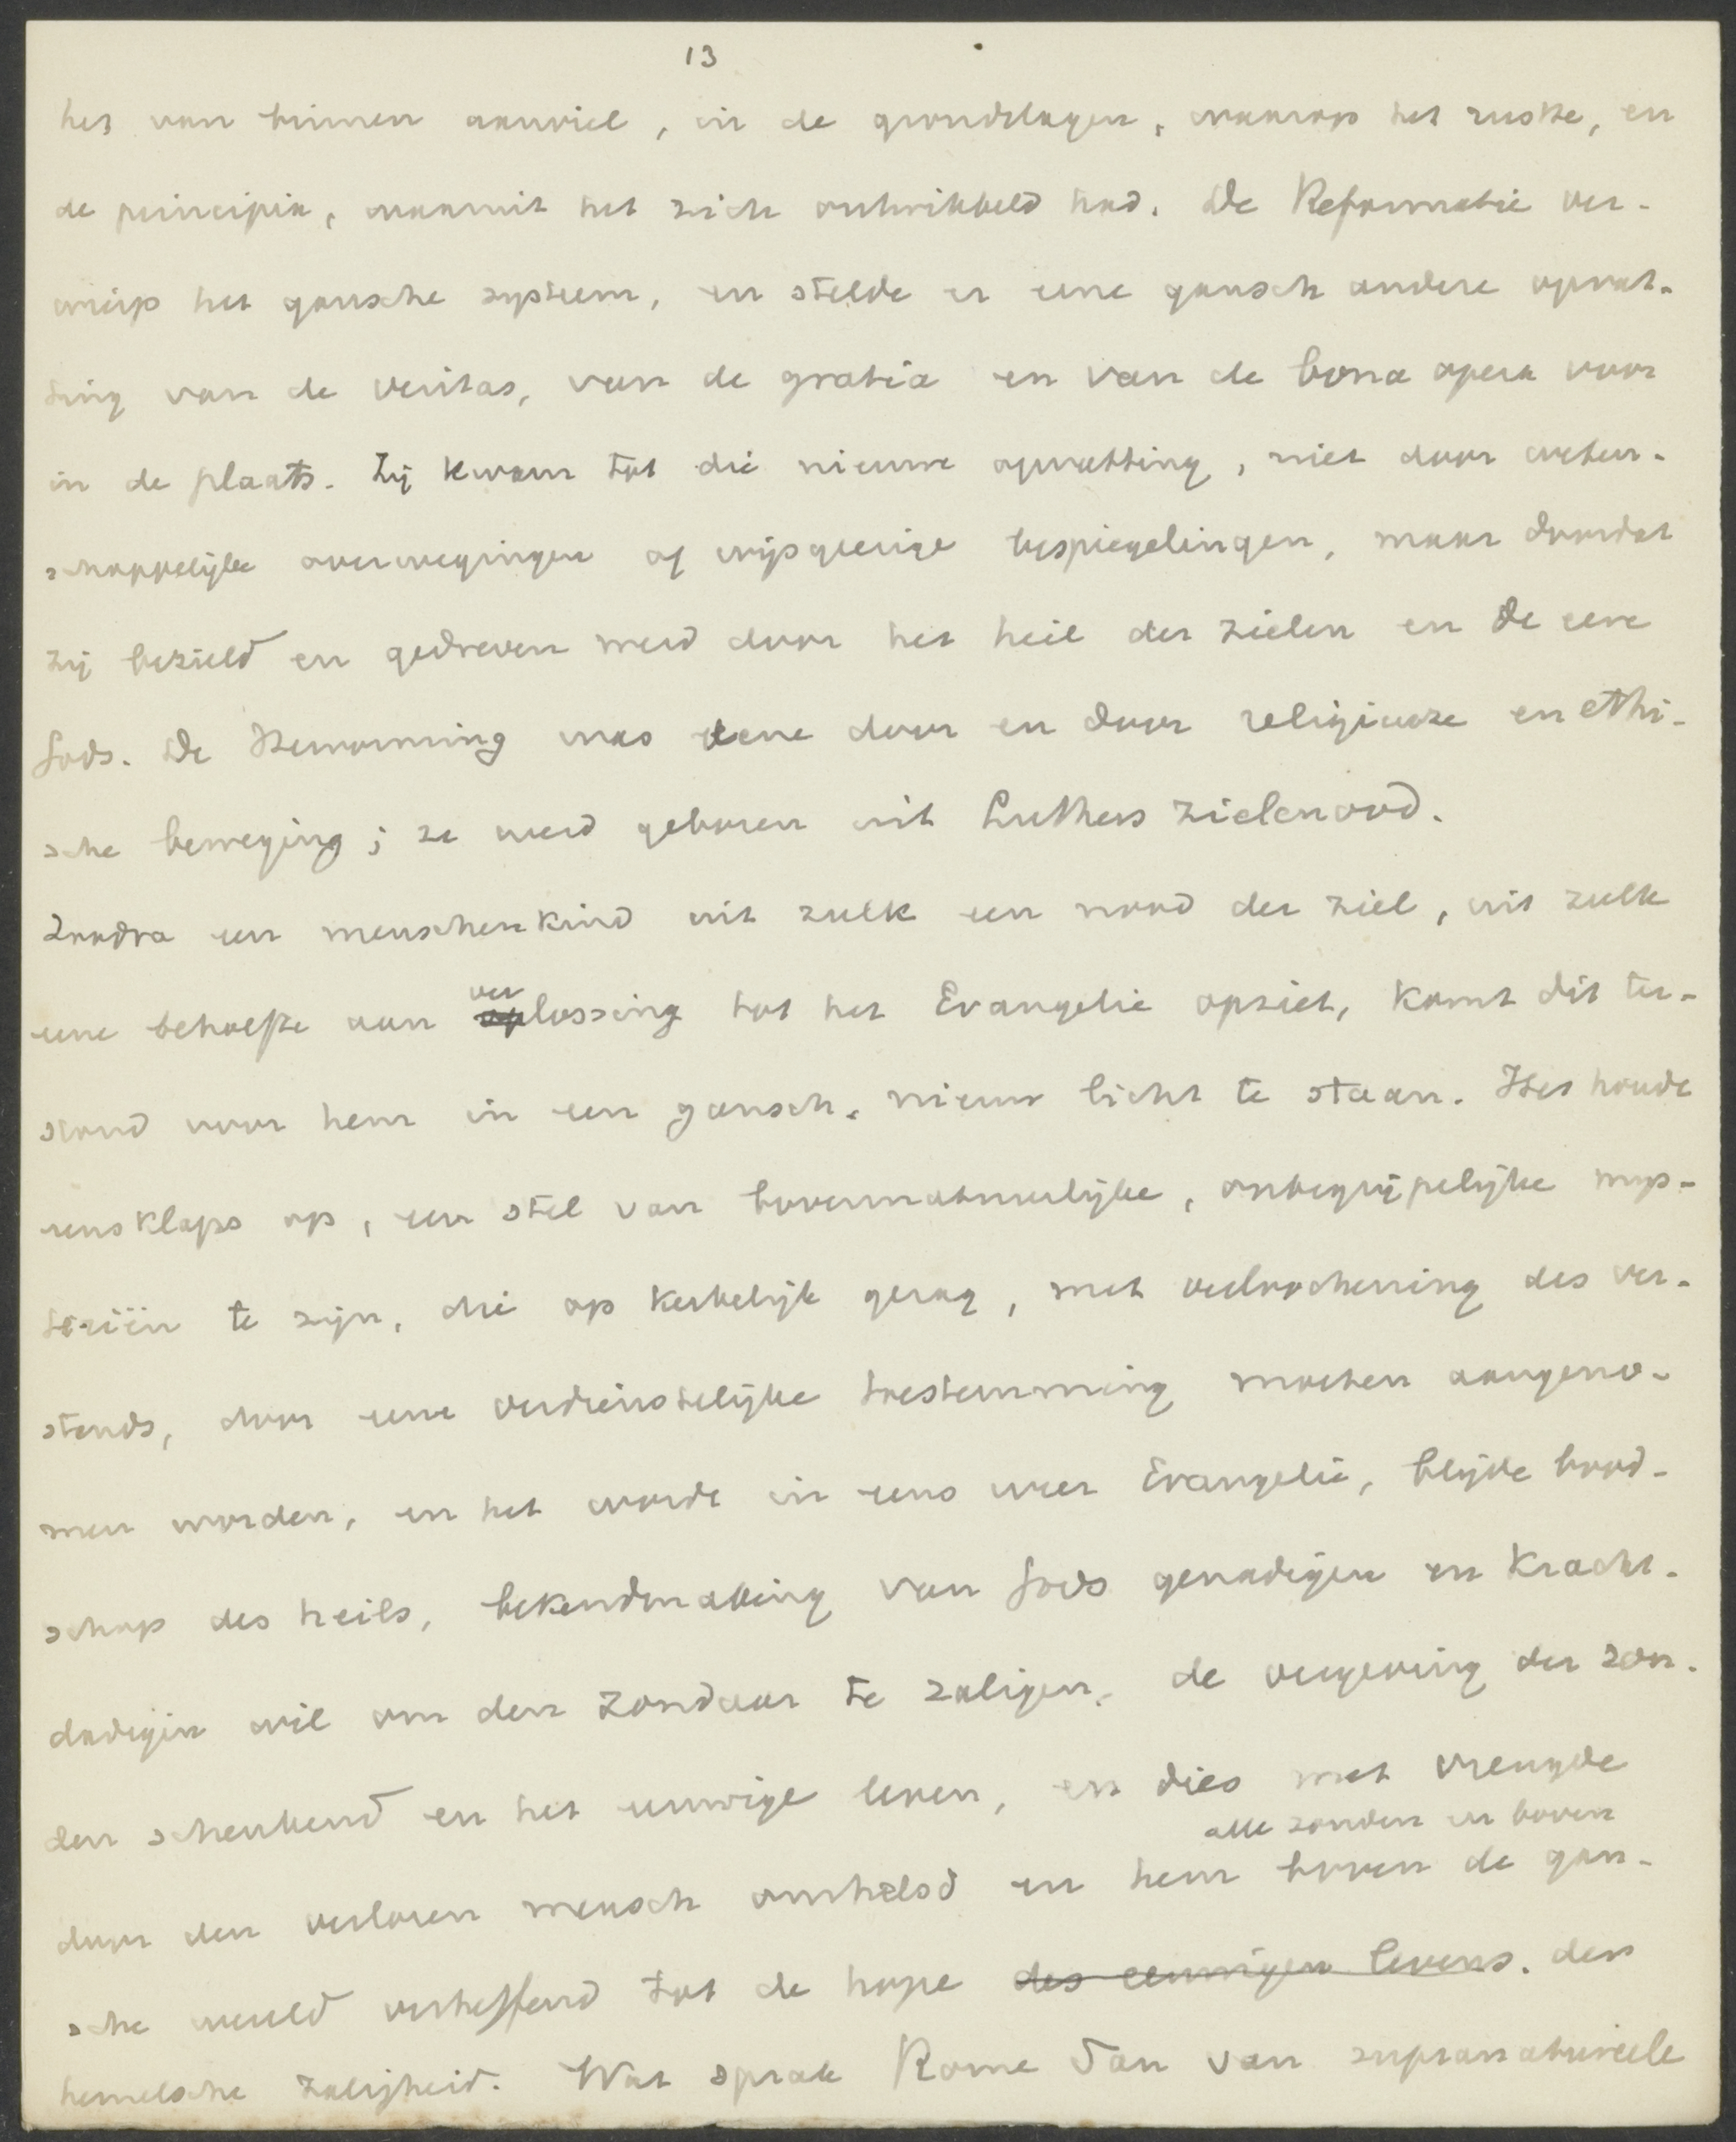 13
het van binnen aanviel, in de grondslagen, waarop het rustte, en
de principia, waaruit het zich ontwikkeld had. De Reformatie ver-
wierp het gansche systeem, en stelde er eene gansch andere opvat-
ting van de veritas, van de gratia en van de bona opera voor
in de plaats. Zij kwam tot die nieuwe opvatting, niet door weten-
schappelijke overwegingen of wijsgeerige bespiegelingen, maar doordat
zij bezield en gedreven werd door het heil der zielen en de eere
Gods. De Hervorming was eene door en door religieuze en ethi-
sche beweging; ze werd geboren uit Luthers zielenood.
Zoodra een menschenkind uit zulk een nood der ziel, uit zulk
ver
eene behoefte aan oplossing tot het Evangelie opziet, komt dit ter-
stond voor hem in een gansch nieuw licht te staan. Het houdt
eensklaps op, een stel van bovennatuurlijke, onbegrijpelijke mys-
teriën te zijn, die op kerkelijk gezag, met verloochening des ver-
stands, door eene verdienstelijke toestemming moeten aangeno-
men worden, en het wordt in eens weer Evangelie, blijde bood-
schap des heils, bekendmaking van Gods genadigen en kracht-
dadigen wil om den zondaar te zaligen, de vergeving der zon-
den schenkend en het eeuwige leven, en dies met vreugde
alle zonden en boven
door den verloren mensch omhelsd en hem boven de gan-
sche wereld verheffend tot de hope des eeuwigen levens. der
hemelsche zaligheid. Wat sprak Rome dan van supranatureele